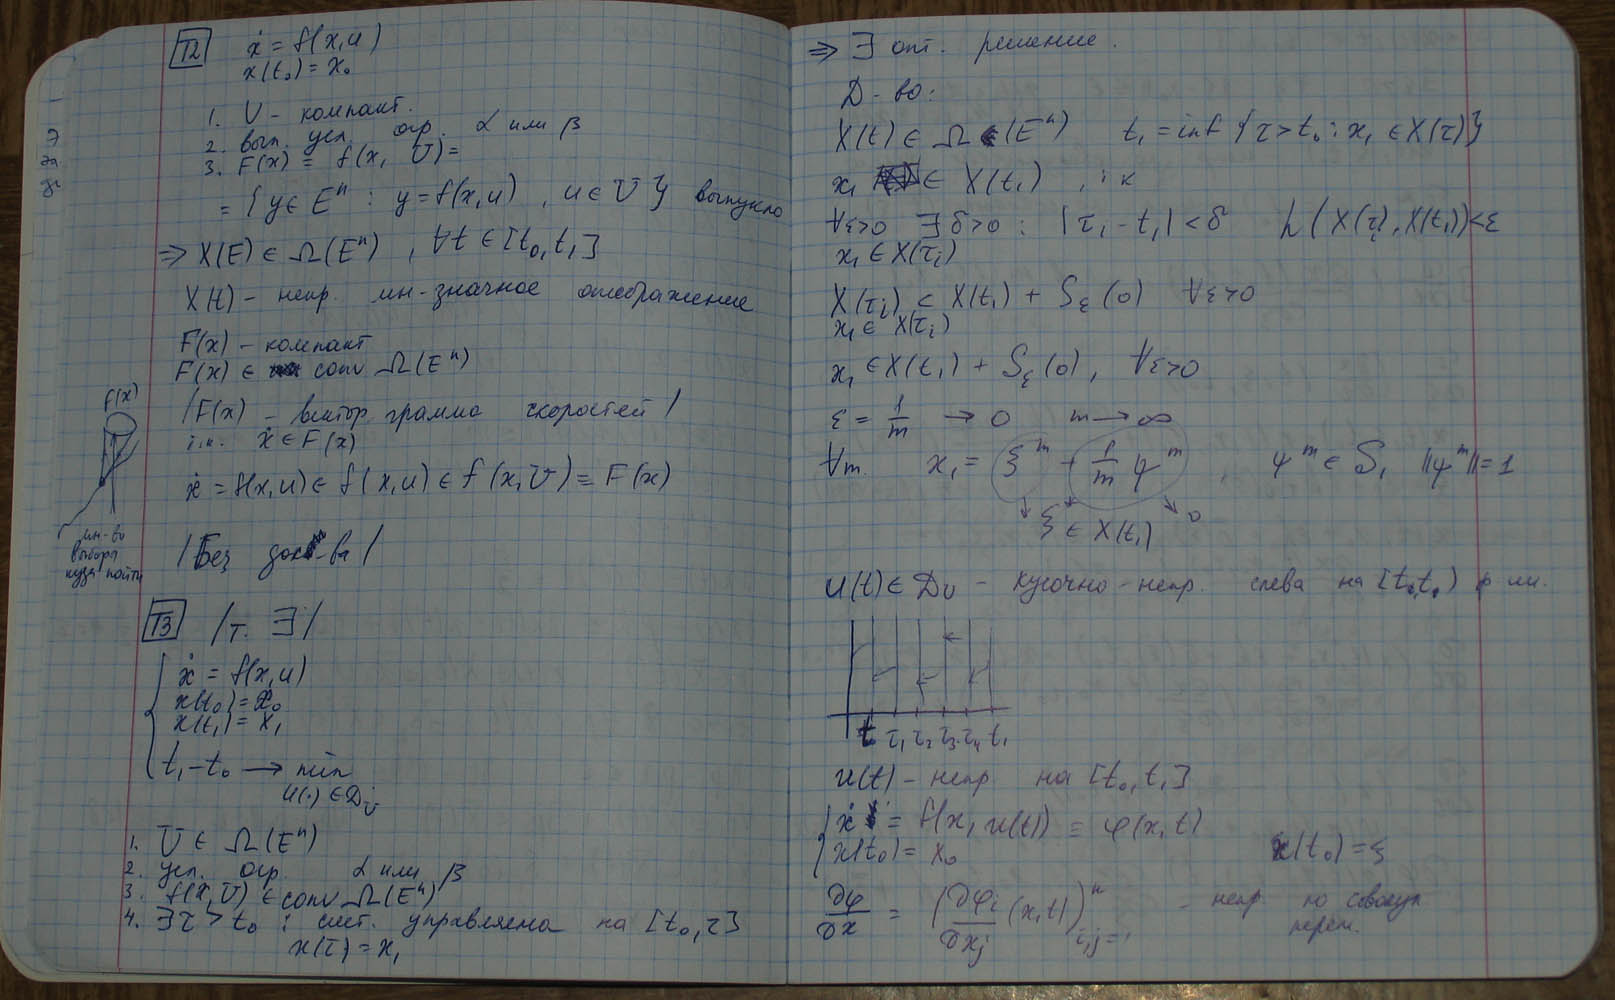 T2 ẋ = f(x,u)
x(t₀) = x₀
1. U - компакт.
2. вып. усл. огр. α или β
3. F(x) = f(x, U) =
= {y ∈ Eⁿ : y = f(x,u), u ∈ U} выпукло
⇒ X(E) ∈ Ω(Eⁿ), ∀t ∈ [t₀, t₁]
X(t) - непр. мн-значное отображение
F(x) - компакт
F(x) ∈ conv Ω(Eⁿ)
F(x)
/F(x) - вектор грамма скоростей/
т.к. ẋ ∈ F(x)
ẋ = f(x,u) ∈ f(x,u) ∈ f(x,U) = F(x)
мн-во
выбора
куда пойти
/Без док-ва/
T3 /т. ∃/
ẋ = f(x,u)
x(t₀) = x₀
x(t₁) = x₁
t₁ - t₀ → min
u(·) ∈ D_U
1. U ∈ Ω(Eⁿ)
2. усл. огр. α или β
3. f(x,U) ∈ conv Ω(Eⁿ)
4. ∃τ > t₀ : сист. управляема на [t₀, τ]
x(τ) = x₁
⇒ ∃ опт. решение.
Д-во:
X(t) ∈ Ω(Eⁿ) t₁ = inf {τ > t₀ : x₁ ∈ X(τ)}
x₁ ∈ X(t₁)
∀ε>0 ∃δ>0 : |τᵢ - t₁| < δ h(X(τᵢ), X(t₁)) < ε
x₁ ∈ X(τᵢ)
X(τᵢ) ⊂ X(t₁) + S_ε(0) ∀ε>0
x₁ ∈ X(τᵢ)
x₁ ∈ X(t₁) + S_ε(0), ∀ε>0
ε = 1/m → 0 m → ∞
∀m. x₁ = ξᵐ + 1/m ψᵐ, ψᵐ ∈ S₁ ||ψᵐ|| = 1
ξ ∈ X(t₁) 0
u(t) ∈ D_U - кусочно-непр. слева на
t τ₁ τ₂ τ₃ τ₄ t₁
u(t) - непр на [t₀, t₁]
ẋ = f(x, u(t)) = φ(x,t)
x(t₀) = x₀ x(t₀) = ξ
∂φ/∂x = (∂φᵢ/∂xⱼ (x,t))ⁿ i,j=1 - непр по совокуп.
перем.